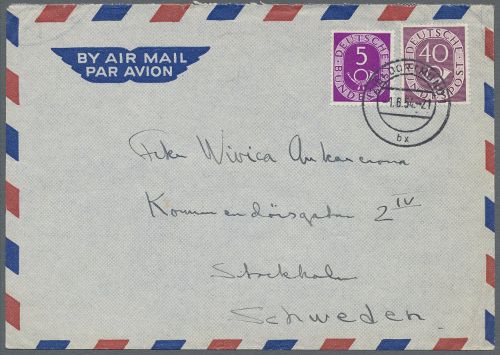 BY AIR MAIL
PAR AVION
DEUTSCHE
5
BUNDESPOST
DEUTSCHE
40
BUNDESPOST
1.6.54.-21
bx
Wivica Ankarcrona
Kommendörsgatan 2 IV
Stockholm
Schweden